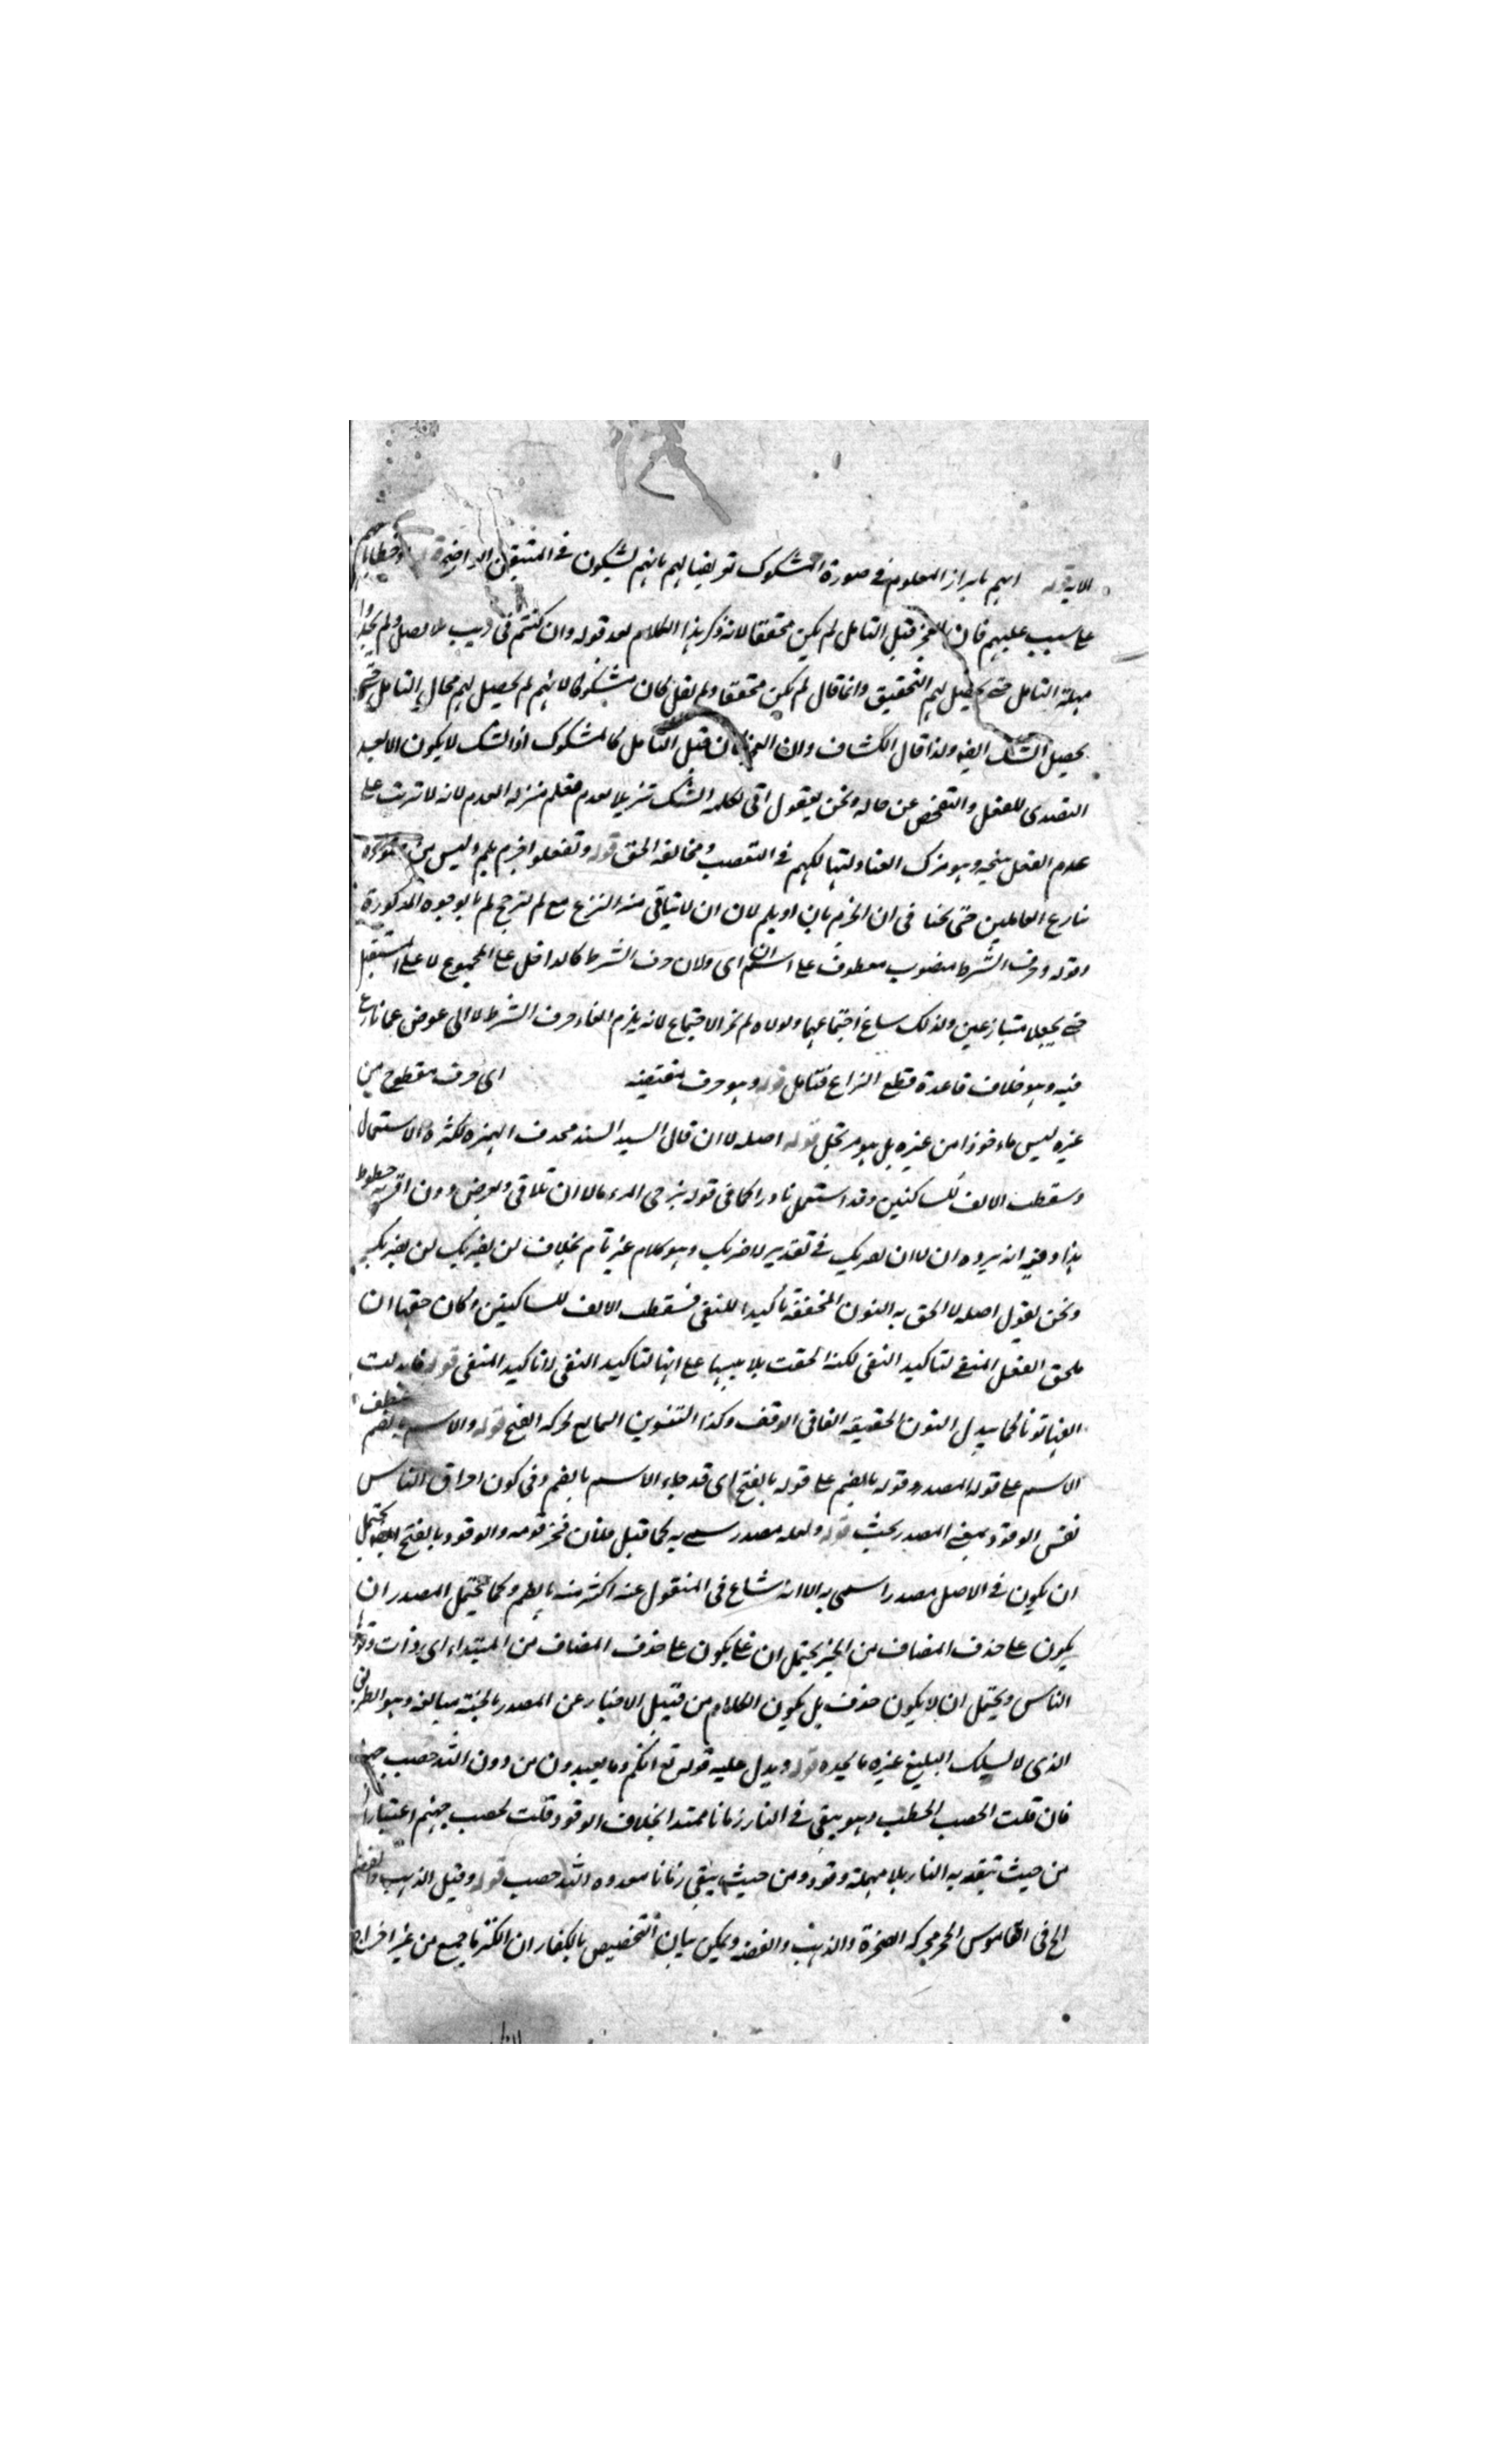 الاية قوله ابهم بابراز المعلوم في صورة المشكوك تعريضا لهم بانهم يشكون في المتيقن الواضح قوله وخطابا معهم
على سبب عليهم فان العجز قبل التامل لم يكن محققا لانه ذكر هذا الكلام بعد قوله وان كنتم في ريب بلا فصل ولم يجدوا
مهلة التامل حتى يحصل لهم التحقيق وانما قال لم يكن محققا ولم يقل كان مشكوكا لانهم لم يحصل لهم مجال التامل حتى
يحصل الشك ايضا ولذا قال الكشاف ولان العجز كان قبل التامل كالمشكوك اذ الشك لا يكون الا بعد
التصدي للفعل والتفحص عن حاله ونحن نقول اتى بكلمة الشك تنزيلا لعدم فعلهم منزلة العدم لانه لا ترتب على
عدم الفعل وهو ترك العناد لتهالكهم في التعصب ومخالفة الحق قوله وتفعلوا جزم بلم وليس من
تنازع العاملين حتى بحثنا في ان الجزم بان او بلم لان ان لا يتاتى منه النزع مع لم ترجح لم بالوجوه المذكورة
وقوله وحرف الشرط منصوب معطوف على اسم ان اى ولان حرف الشرط كالداخل على المجموع لا على المستقبل
حتى يجعلا متنازعين ولذلك ساغ اجتماعهما ولولاه لم يجز الاجتماع لانه يلزم الغاء حرف الشرط لا الى عوض عما نازع
فيه وهو خلاف قاعدة قطع النزاع فتامل قوله وهو حرف مقتضب اى حرف مقطوع من
غيره ليس ماخوذا من غيره بل هو مرتجل قوله اصله لا ان قال السيد السند محذف الهمزة لكثرة الاستعمال
وسقطت الالف للساكنين وقد استعمل نادرا كما في قوله يرجى المرء ما لا ان يلاقي ويعرض دون اقربه خطوط
هذا وفيه انه يرده ان لا ان يضربك في تقدير لا ضربك وهو كلام غير تام بخلاف لن يضربك لن يضربك
ونحن نقول اصله لا الحق به النون المخففة تاكيدا للنفي فسقطت الالف للساكنين وكان حقها ان
يلحق الفعل المنفي لتاكيد النفي لكنه الحقت بلا تنبيها على انها لتاكيد النفي لا تاكيد المنفي قوله فابدلت
الفها نونا كما يبدل النون الخفيفة الفا في الوقف وكذا التنوين التابع لحركة الفتح قوله والاسم بالضم عطف
الاسم على قوله المصدر وقوله بالضم على قوله بالفتح اى قد جاء الاسم بالضم وفي كون احراق الناس
نفس الوقود بمعنى المصدر بحث قوله ولعله مصدر سمى به كما قيل فلان فخر قومه والوقود بالفتح ايضا يحتمل
ان يكون في الاصل مصدرا سمى به الا انه شاع في المنقول عنه اكثر منه بالضم وكما يحتمل المصدر ان
يكون على حذف المضاف من الخبر يحتمل ان يكون على حذف المضاف من المبتداء اى ذات وقودها
الناس ويحتمل ان لا يكون حذف بل يكون الكلام من قبيل الاخبار عن المصدر بالجثة مبالغة وهو الطريق
الذي لا يسلك البليغ غيره ما يجده قوله ويدل عليه قوله تع انكم وما تعبدون من دون الله حصب جهنم
فان قلت الحصب الحطب وهو يبقى في النار زمانا ممتدا بخلاف الوقود قلت حصب جهنم اعتبارا
من حيث تتقد به النار بلا مهلة وقود ومن حيث يبقى زمانا حصب قوله وقيل الذهب والفضة
الخ في القاموس الحجر محركة الصخرة والذهب والفضة ويمكن بيان التخصيص بالكفار ان الكنز ما جمع من غير اخراج